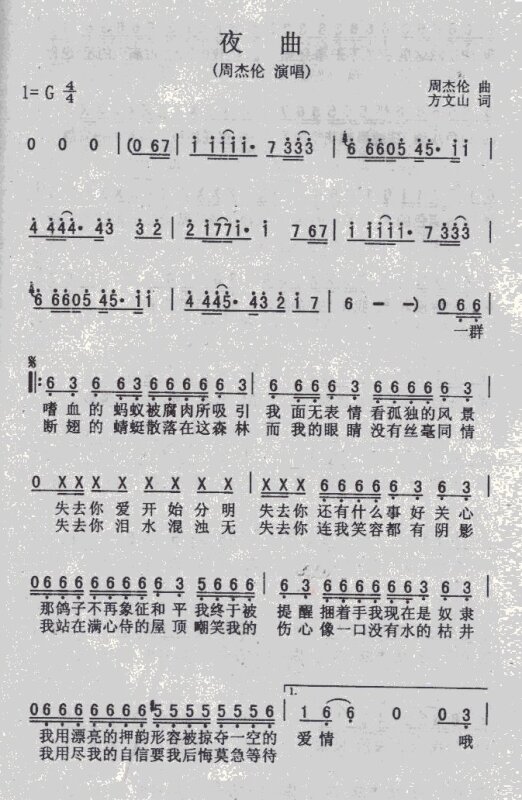 夜 曲
(周杰伦 演唱)
1= G 4/4
周杰伦 曲
方文山 词
0 0 0 | (0 67 | i iiii· 7 333 | 6 6605 45· ii |
4 444· 43 32 | 2 i77i· i 767 | i iiii· 7 333 |
6 6605 45· ii | 4 445· 43 2 i7 | 6 - -) 0 66
一群
6 3 6 63 6666 63 | 6 6 666 6666 63 |
嗜血的 蚂蚁被腐肉所吸引 我 面无表 情看孤独的风景
断翅的 蜻蜓散落在这森林 而 我的眼 睛没有丝毫同情
0 X X X X X X X | X X X 6666 6 6 3 |
失去你 爱开始分明 失去你 还有什么事好关心
失去你 泪水混浊无 失去你 连我笑容都有阴影
0666 6666 63 6666 | 63 6666 6666 63 |
那鸽子不再象征和平 我终于被 提醒 捆着手我现在是 奴隶
我站在满心侍的屋顶 嘲笑我的 伤心 像一口没有水的 枯井
0666 6666 5555 5556 | 1 6 6 0 0 3 |
1.
我用漂亮的押韵形容被掠夺一空的 爱情 哦
我用尽我的自信要我后悔莫急等待